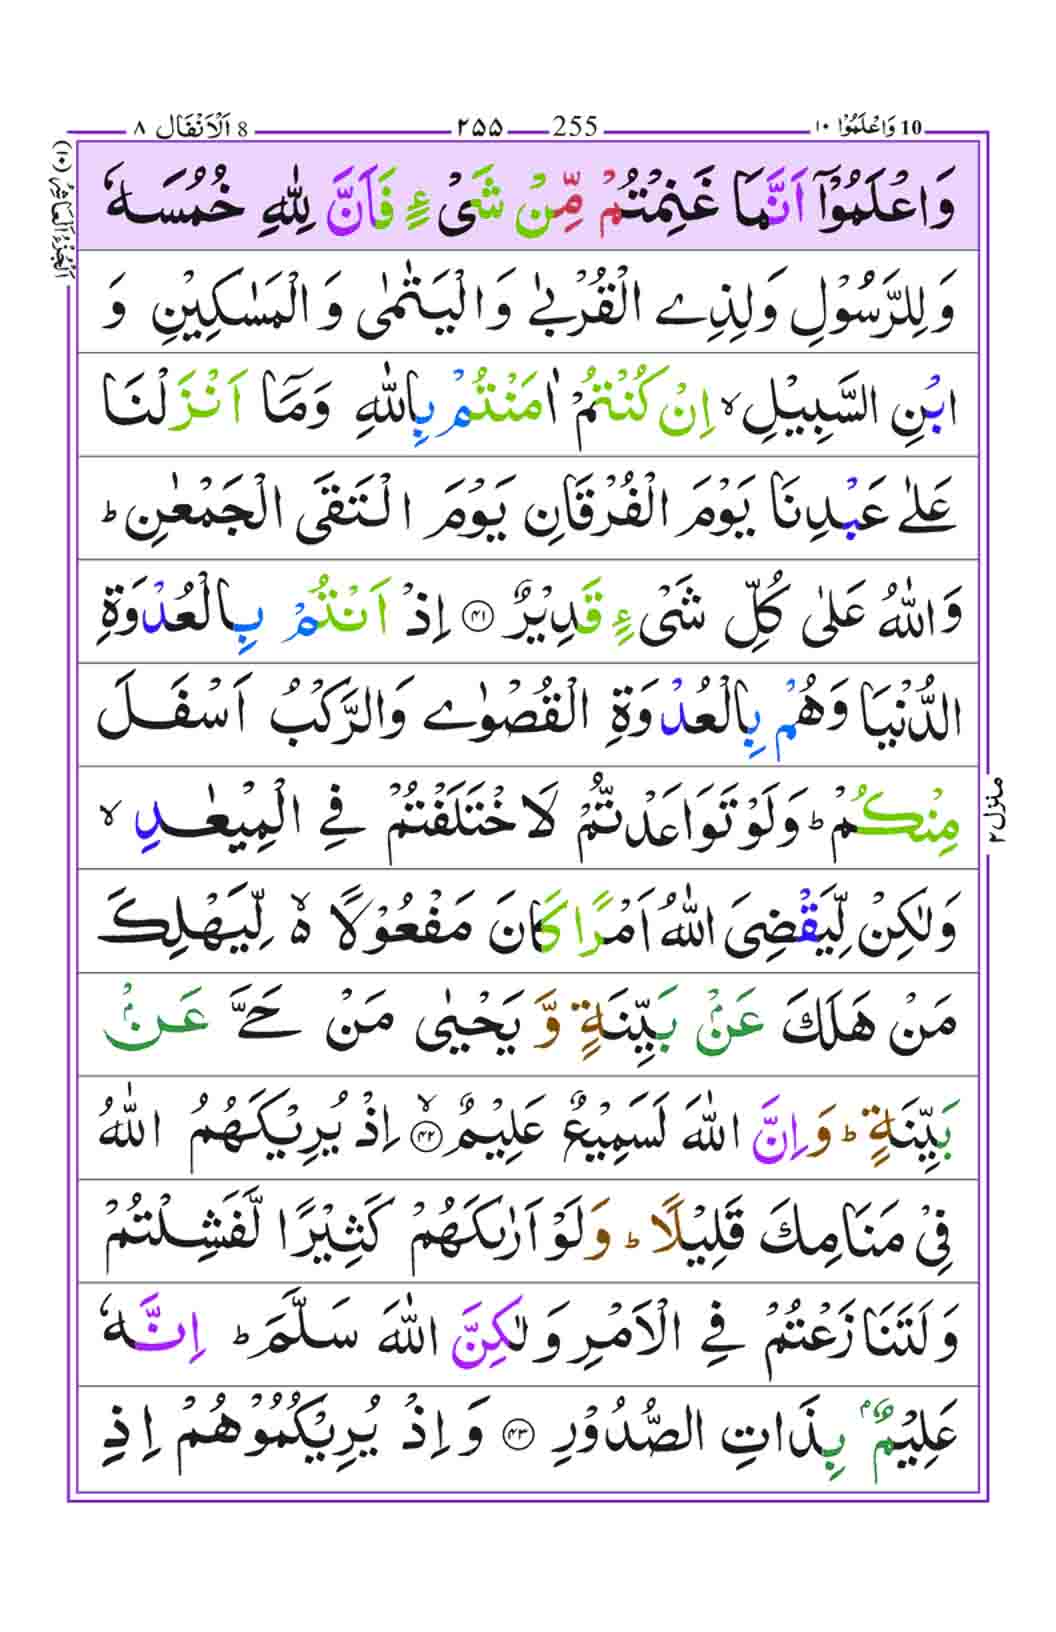 10 وَاعْلَمُوْا ۱۰ 255 ۲۵۵ 8 اَلْاَنْفَال ۸
اَلْجُزْءُ الْعَاشِرُ (۱۰)
وَاعْلَمُوْۤا اَنَّمَا غَنِمْتُمْ مِّنْ شَیْءٍ فَاَنَّ لِلّٰهِ خُمُسَهٗ
وَلِلرَّسُوْلِ وَلِذِی الْقُرْبٰی وَالْیَتٰمٰی وَالْمَسٰكِیْنِ وَ
ابْنِ السَّبِیْلِ ۙ اِنْ كُنْتُمْ اٰمَنْتُمْ بِاللّٰهِ وَمَاۤ اَنْزَلْنَا
عَلٰی عَبْدِنَا یَوْمَ الْفُرْقَانِ یَوْمَ الْتَقَی الْجَمْعٰنِ ؕ
وَاللّٰهُ عَلٰی كُلِّ شَیْءٍ قَدِیْرٌ ﴿۴۱﴾ اِذْ اَنْتُمْ بِالْعُدْوَةِ
الدُّنْیَا وَهُمْ بِالْعُدْوَةِ الْقُصْوٰی وَالرَّكْبُ اَسْفَلَ
مِنْكُمْ ؕ وَلَوْ تَوَاعَدْتُّمْ لَاخْتَلَفْتُمْ فِی الْمِیْعٰدِ ۙ
وَلٰكِنْ لِّیَقْضِیَ اللّٰهُ اَمْرًا كَانَ مَفْعُوْلًا ۙ۬ لِّیَهْلِكَ
مَنْ هَلَكَ عَنْۢ بَیِّنَةٍ وَّیَحْیٰی مَنْ حَیَّ عَنْۢ
بَیِّنَةٍ ؕ وَاِنَّ اللّٰهَ لَسَمِیْعٌ عَلِیْمٌ ۙ﴿۴۲﴾ اِذْ یُرِیْكَهُمُ اللّٰهُ
فِیْ مَنَامِكَ قَلِیْلًا ؕ وَلَوْ اَرٰىكَهُمْ كَثِیْرًا لَّفَشِلْتُمْ
وَلَتَنَازَعْتُمْ فِی الْاَمْرِ وَلٰكِنَّ اللّٰهَ سَلَّمَ ؕ اِنَّهٗ
عَلِیْمٌۢ بِذَاتِ الصُّدُوْرِ ﴿۴۳﴾ وَاِذْ یُرِیْكُمُوْهُمْ اِذِ
منزل ۲